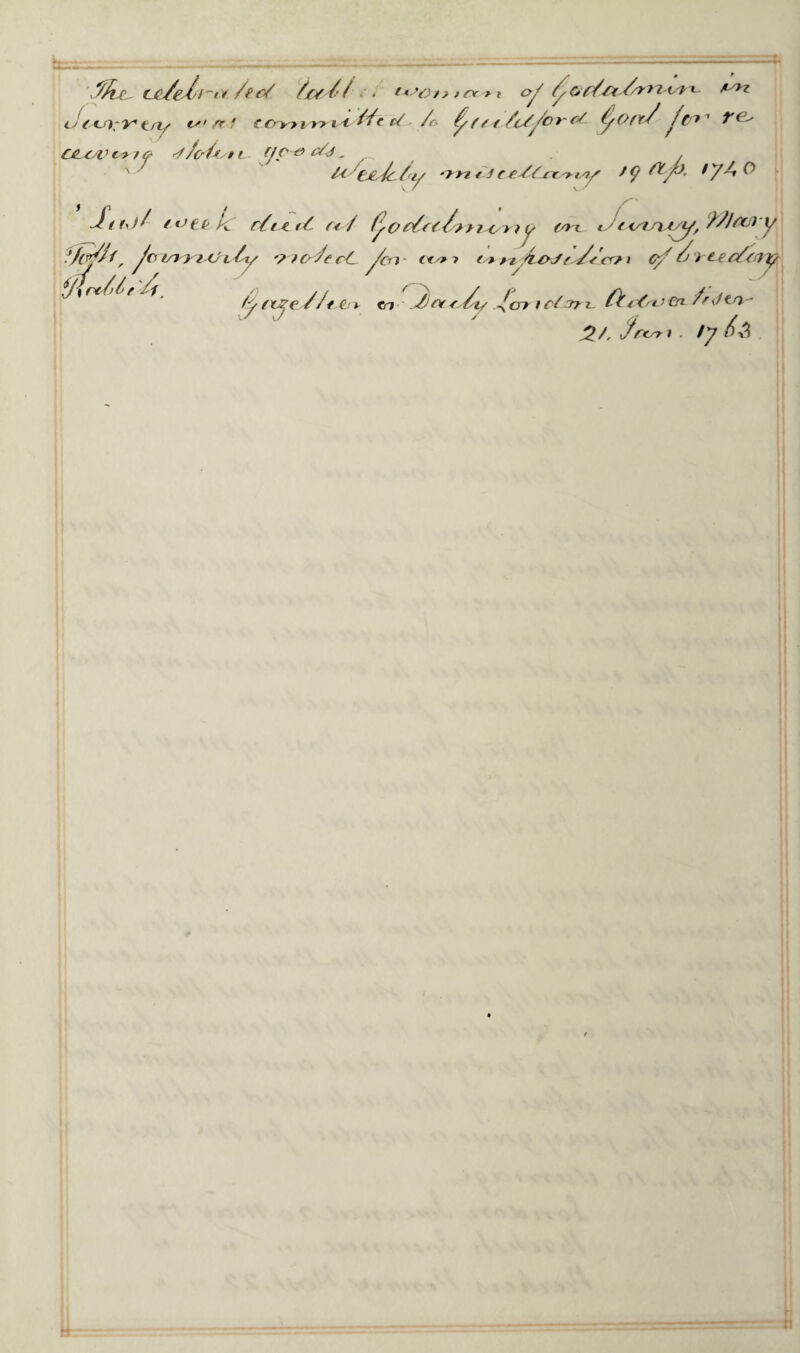 The celebrated rabbit woman of Godalmin in
Surrey was committed to Guildford Goal for re-
ceiving stolen goods.
Weekly miscellany 19 Ap. 1740
'Last week died at Godalming in Surrey, Mary
Tofts, formerly noted for an imposition of breeding
Rabbits.
Gazetteer or Daily London Advertiser
21. Jan. 1763.